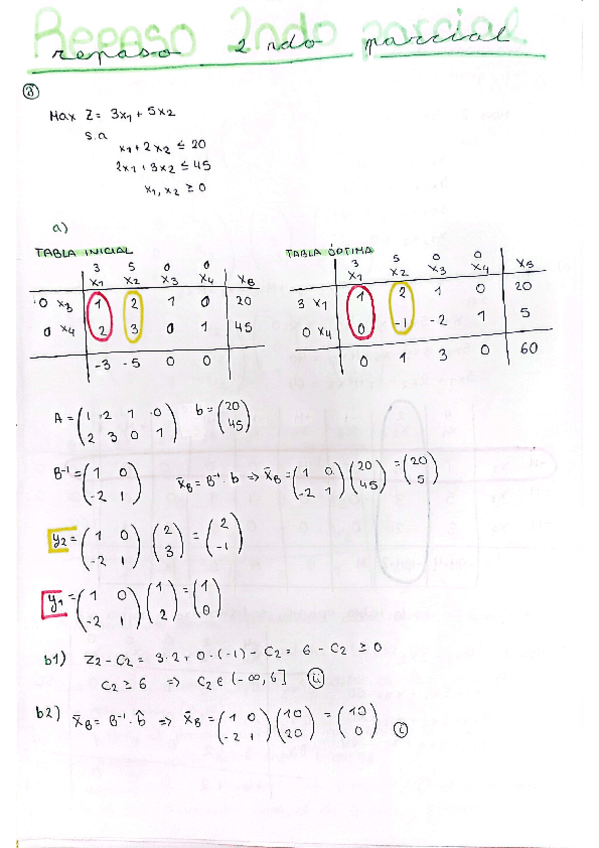 Repaso 2ndo parcial
repaso 2ndo parcial
①
Max Z = 3x1 + 5x2
s.a
x1 + 2x2 ≤ 20
2x1 + 3x2 ≤ 45
x1, x2 ≥ 0
a)
TABLA INICIAL
3 5 0 0
x1 x2 x3 x4 xB
0 x3 1 2 1 0 20
0 x4 2 3 0 1 45
-3 -5 0 0
TABLA ÓPTIMA
3 5 0 0
x1 x2 x3 x4 xB
3 x1 1 2 1 0 20
0 x4 0 -1 -2 1 5
0 1 3 0 60
A = (1 2 1 0 b = (20
2 3 0 1) 45)
B⁻¹ = (1 0 x̄B = B⁻¹ · b ⇒ x̄B = (1 0 (20 = (20
-2 1) -2 1) 45) 5)
y2 = (1 0 (2 = (2
-2 1) 3) -1)
y1 = (1 0 (1 = (1
-2 1) 2) 0)
b1) Z2 - C2 = 3·2 + 0·(-1) - C2 = 6 - C2 ≥ 0
C2 ≥ 6 ⇒ C2 ∈ (-∞, 6] ii
b2) x̄B = B⁻¹ · b̂ ⇒ x̄B = (1 0 (10 = (10
-2 1) 20) 0) i